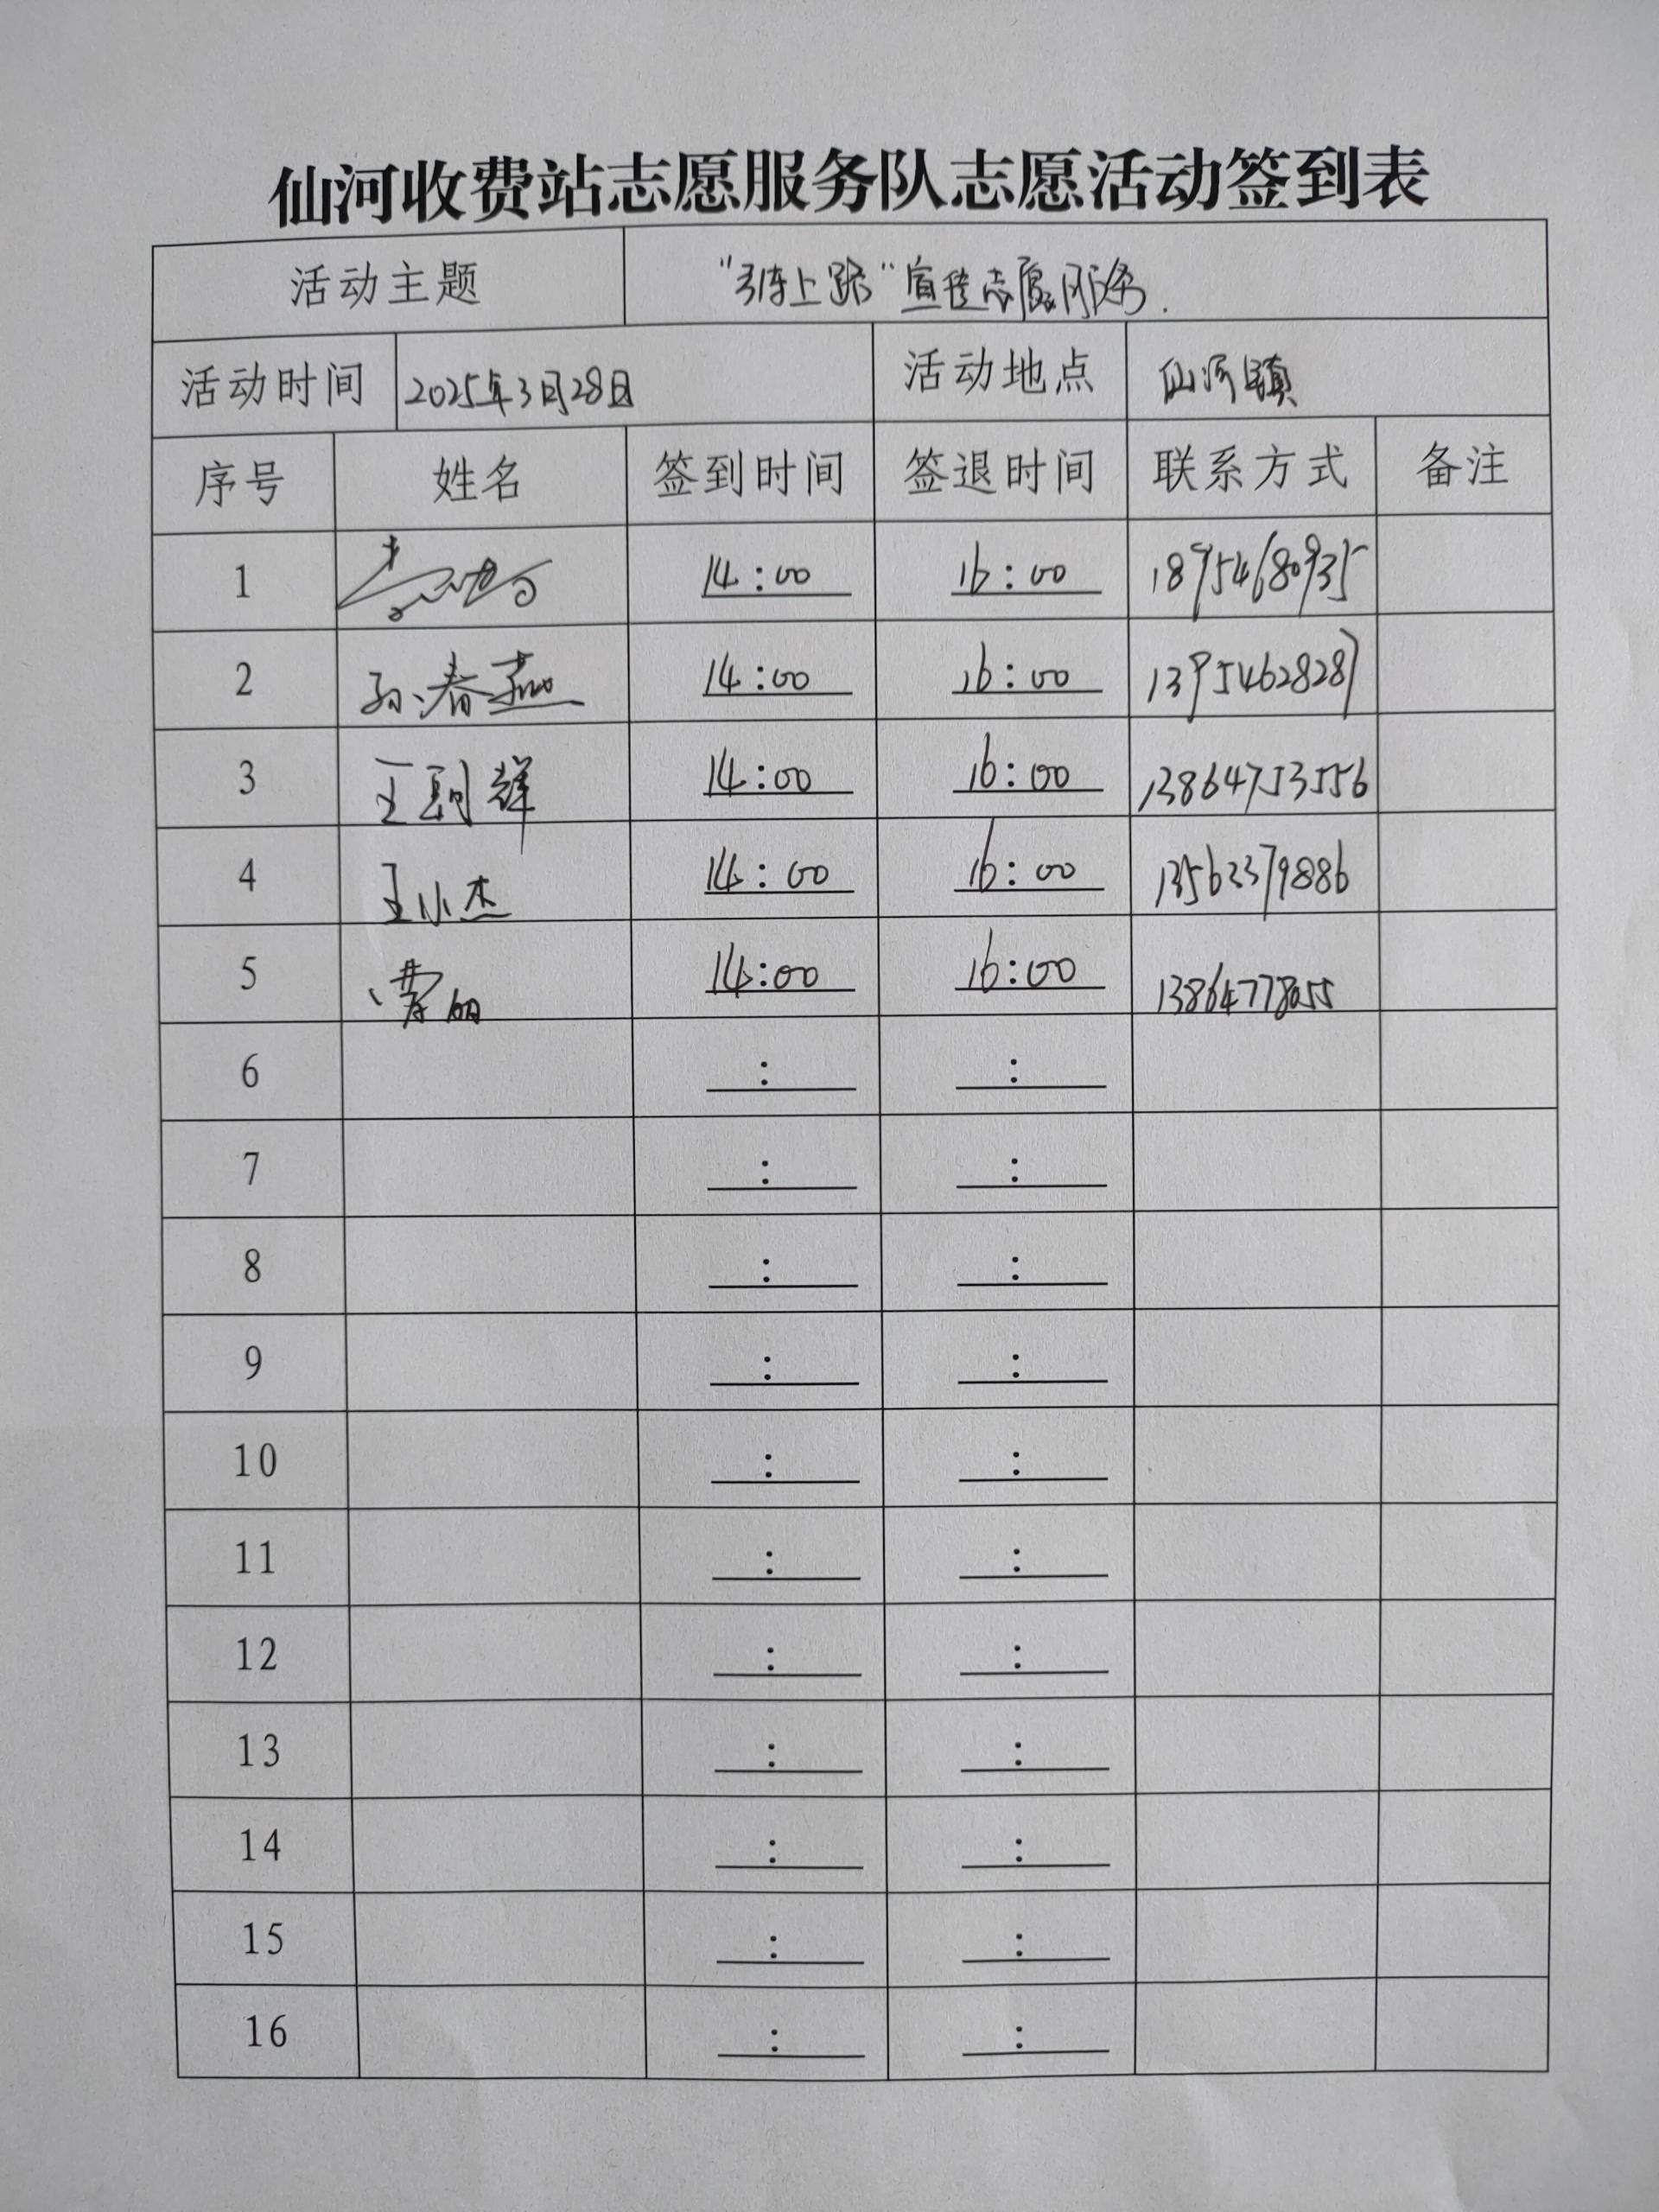 仙河收费站志愿服务队志愿活动签到表
活动主题 上路"宣传志愿服务.
活动时间 2025年3月28日 活动地点 仙河镇
序号 姓名 签到时间 签退时间 联系方式 备注
1 14:00 16:00 18954680935
2 孙春燕 14:00 16:00 13954628287
3 王 辉 14:00 16:00 13864753556
4 王小杰 14:00 16:00 13562379886
5 14:00 16:00 13864778055
6 : :
7 : :
8 : :
9 : :
10 : :
11 : :
12 : :
13 : :
14 : :
15 : :
16 : :